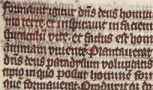 Formauit igitur dñs deus homin
mo terre et inspirauit in faciem
spiraculũ uite et factus est homo
animam uiuentẽ Plantauerat
deus paradysum uoluptatis
cipio in quo posuit hominẽ
formauerat Produxitq